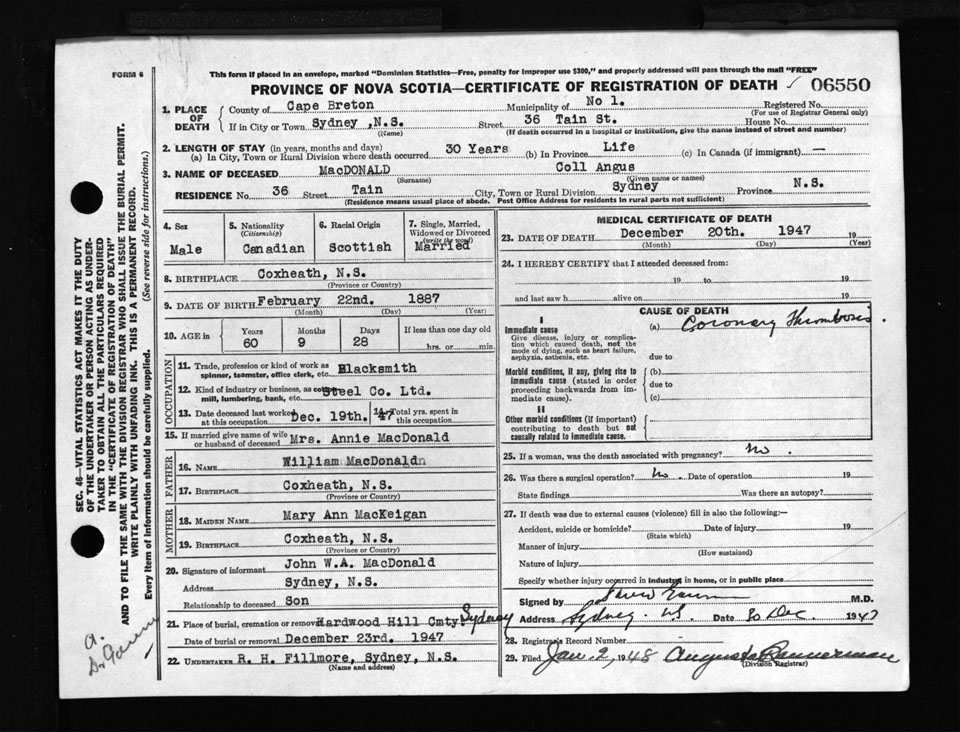 FORM 6
This form if placed in an envelope, marked "Dominion Statistics—Free, penalty for improper use $300," and properly addressed will pass through the mail "FREE"
PROVINCE OF NOVA SCOTIA—CERTIFICATE OF REGISTRATION OF DEATH 06550
1. PLACE OF DEATH County of Cape Breton Municipality of No 1. Registered No (For use of Registrar General only)
If in City or Town Sydney ,N.S. (Name) Street 36 Tain St. House No.
(If death occurred in a hospital or institution, give the name instead of street and number)
2. LENGTH OF STAY (in years, months and days)
(a) In City, Town or Rural Division where death occurred 30 Years (b) In Province Life (c) In Canada (if immigrant) —
3. NAME OF DECEASED MacDONALD (Surname) Coll Angus (Given name or names)
RESIDENCE No. 36 Street Tain City, Town or Rural Division Sydney Province N.S.
(Residence means usual place of abode. Post Office Address for residents in rural parts not sufficient)
4. Sex Male
5. Nationality (Citizenship) Canadian
6. Racial Origin Scottish
7. Single, Married, Widowed or Divorced (write the word) Married
8. BIRTHPLACE Coxheath, N.S.
(Province or Country)
9. DATE OF BIRTH February 22nd. 1887
(Month) (Day) (Year)
10. AGE in Years 60 Months 9 Days 28 If less than one day old hrs. or min.
OCCUPATION
11. Trade, profession or kind of work as spinner, teamster, office clerk, etc. Blacksmith
12. Kind of industry or business, as cotton mill, lumbering, bank, etc. Steel Co. Ltd.
13. Date deceased last worked at this occupation Dec. 19th. 1947 Total yrs. spent in this occupation
15. If married give name of wife or husband of deceased Mrs. Annie MacDonald
FATHER
16. NAME William MacDonald
17. BIRTHPLACE Coxheath, N.S.
(Province or Country)
MOTHER
18. MAIDEN NAME Mary Ann MacKeigan
19. BIRTHPLACE Coxheath, N.S.
(Province or Country)
20. Signature of informant John W.A. MacDonald
Address Sydney, N.S.
Relationship to deceased Son
21. Place of burial, cremation or removal Hardwood Hill Cmty. Sydney
Date of burial or removal December 23rd. 1947
22. UNDERTAKER R. H. Fillmore, Sydney, N.S.
(Name and address)
MEDICAL CERTIFICATE OF DEATH
23. DATE OF DEATH December 20th. 1947 19
(Month) (Day) (Year)
24. I HEREBY CERTIFY that I attended deceased from:
19 to 19
and last saw h alive on 19
CAUSE OF DEATH
I
Immediate cause (a) Coronary Thrombosis.
Give disease, injury or complication which caused death, not the mode of dying, such as heart failure, asphyxia, asthenia, etc.
due to
Morbid conditions, if any, giving rise to immediate cause (stated in order proceeding backwards from immediate cause).
(b)
due to
(c)
II
Other morbid conditions (if important) contributing to death but not causally related to immediate cause.
25. If a woman, was the death associated with pregnancy? no.
26. Was there a surgical operation? no. Date of operation 19
State findings Was there an autopsy?
27. If death was due to external causes (violence) fill in also the following:—
Accident, suicide or homicide? (State which) Date of injury 19
Manner of injury
(How sustained)
Nature of injury
Specify whether injury occurred in industry, in home, or in public place
Signed by M.D.
Address Sydney. N.S. Date 30 Dec 1947
28. Registrar's Record Number
29. Filed Jan. 2, 1948 Augusta Bannerman
(Division Registrar)
SEC. 46—VITAL STATISTICS ACT MAKES IT THE DUTY
OF THE UNDERTAKER OR PERSON ACTING AS UNDER-
TAKER TO OBTAIN ALL THE PARTICULARS REQUIRED
IN THE "CERTIFICATE OF REGISTRATION OF DEATH"
AND TO FILE THE SAME WITH THE DIVISION REGISTRAR WHO SHALL ISSUE THE BURIAL PERMIT.
WRITE PLAINLY WITH UNFADING INK. THIS IS A PERMANENT RECORD.
Every item of information should be carefully supplied. (See reverse side for instructions.)